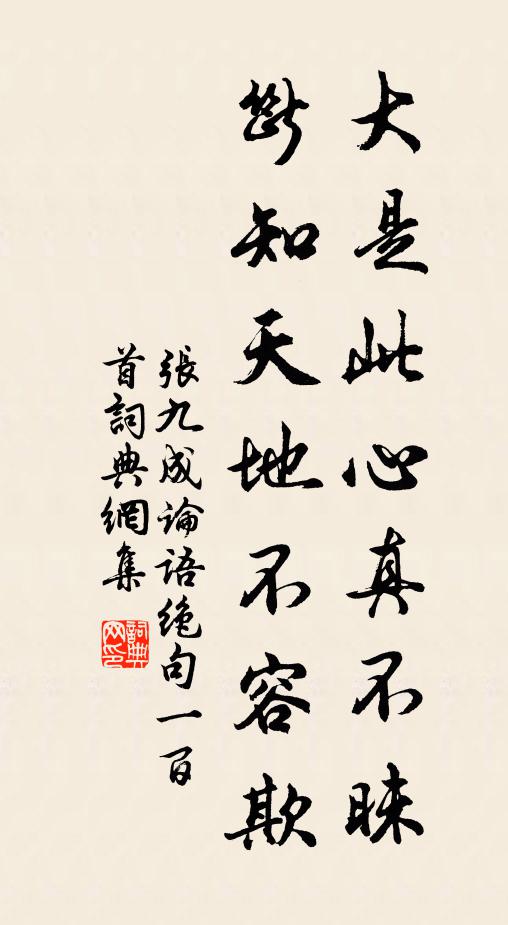 大是此心真不昧
斷知天地不容欺
張九成論語絶句一百
首詞典網集
詞典
网印